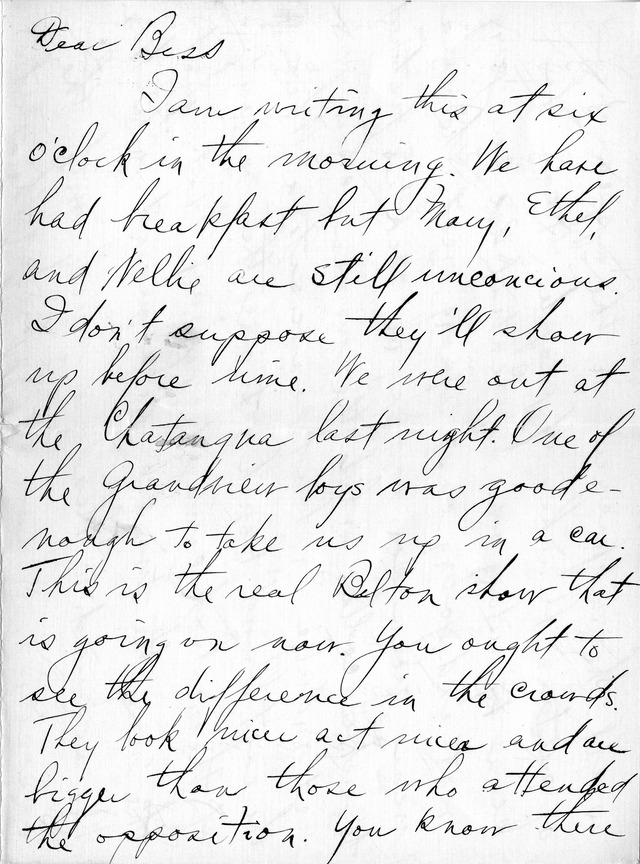 Dear Bess
I am writing this at six
o'clock in the morning. We have
had breakfast but Mary, Ethel,
and Nellie are still unconcious.
I don't suppose they'll show
up before nine. We were out at
the Chatanqua last night. One of
the Grandview boys was good e-
nough to take us up in a car.
This is the real Belton show that
is going on now. You ought to
see the difference in the crowds.
They look nicer act nicer and are
bigger than those who attended
the opposition. You know there